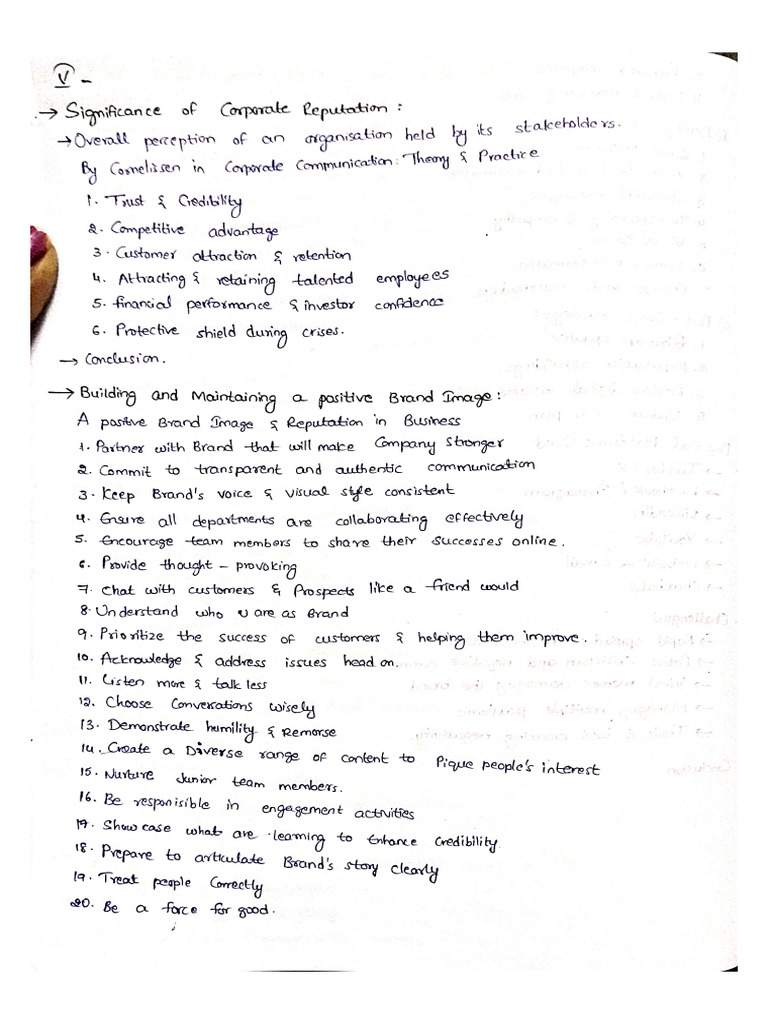 V -
→ Significance of Corporate Reputation :
→ Overall perception of an organisation held by its stakeholders.
By Cornelissen in Corporate Communication: Theory & Practice
1. Trust & Credibility
2. Competitive advantage
3. Customer attraction & retention
4. Attracting & retaining talented employees
5. financial performance & investor confidence
6. Protective shield during crises.
→ Conclusion.
→ Building and Maintaining a positive Brand Image :
A positive Brand Image & Reputation in Business
1. Partner with Brand that will make Company Stronger
2. Commit to transparent and authentic communication
3. Keep Brand's voice & visual style consistent
4. Ensure all departments are collaborating effectively
5. Encourage team members to share their successes online.
6. Provide thought - provoking
7. Chat with customers & Prospects like a friend would
8. Understand who u are as Brand
9. Prioritize the success of customers & helping them improve.
10. Acknowledge & address issues head on.
11. Listen more & talk less
12. Choose Conversations wisely
13. Demonstrate humility & Remorse
14. Create a Diverse range of content to Pique people's interest
15. Nurture Junior team members.
16. Be responisible in engagement activities
17. Show case what are learning to Enhance Credibility.
18. Prepare to articulate Brand's story clearly
19. Treat people Correctly
20. Be a force for good.